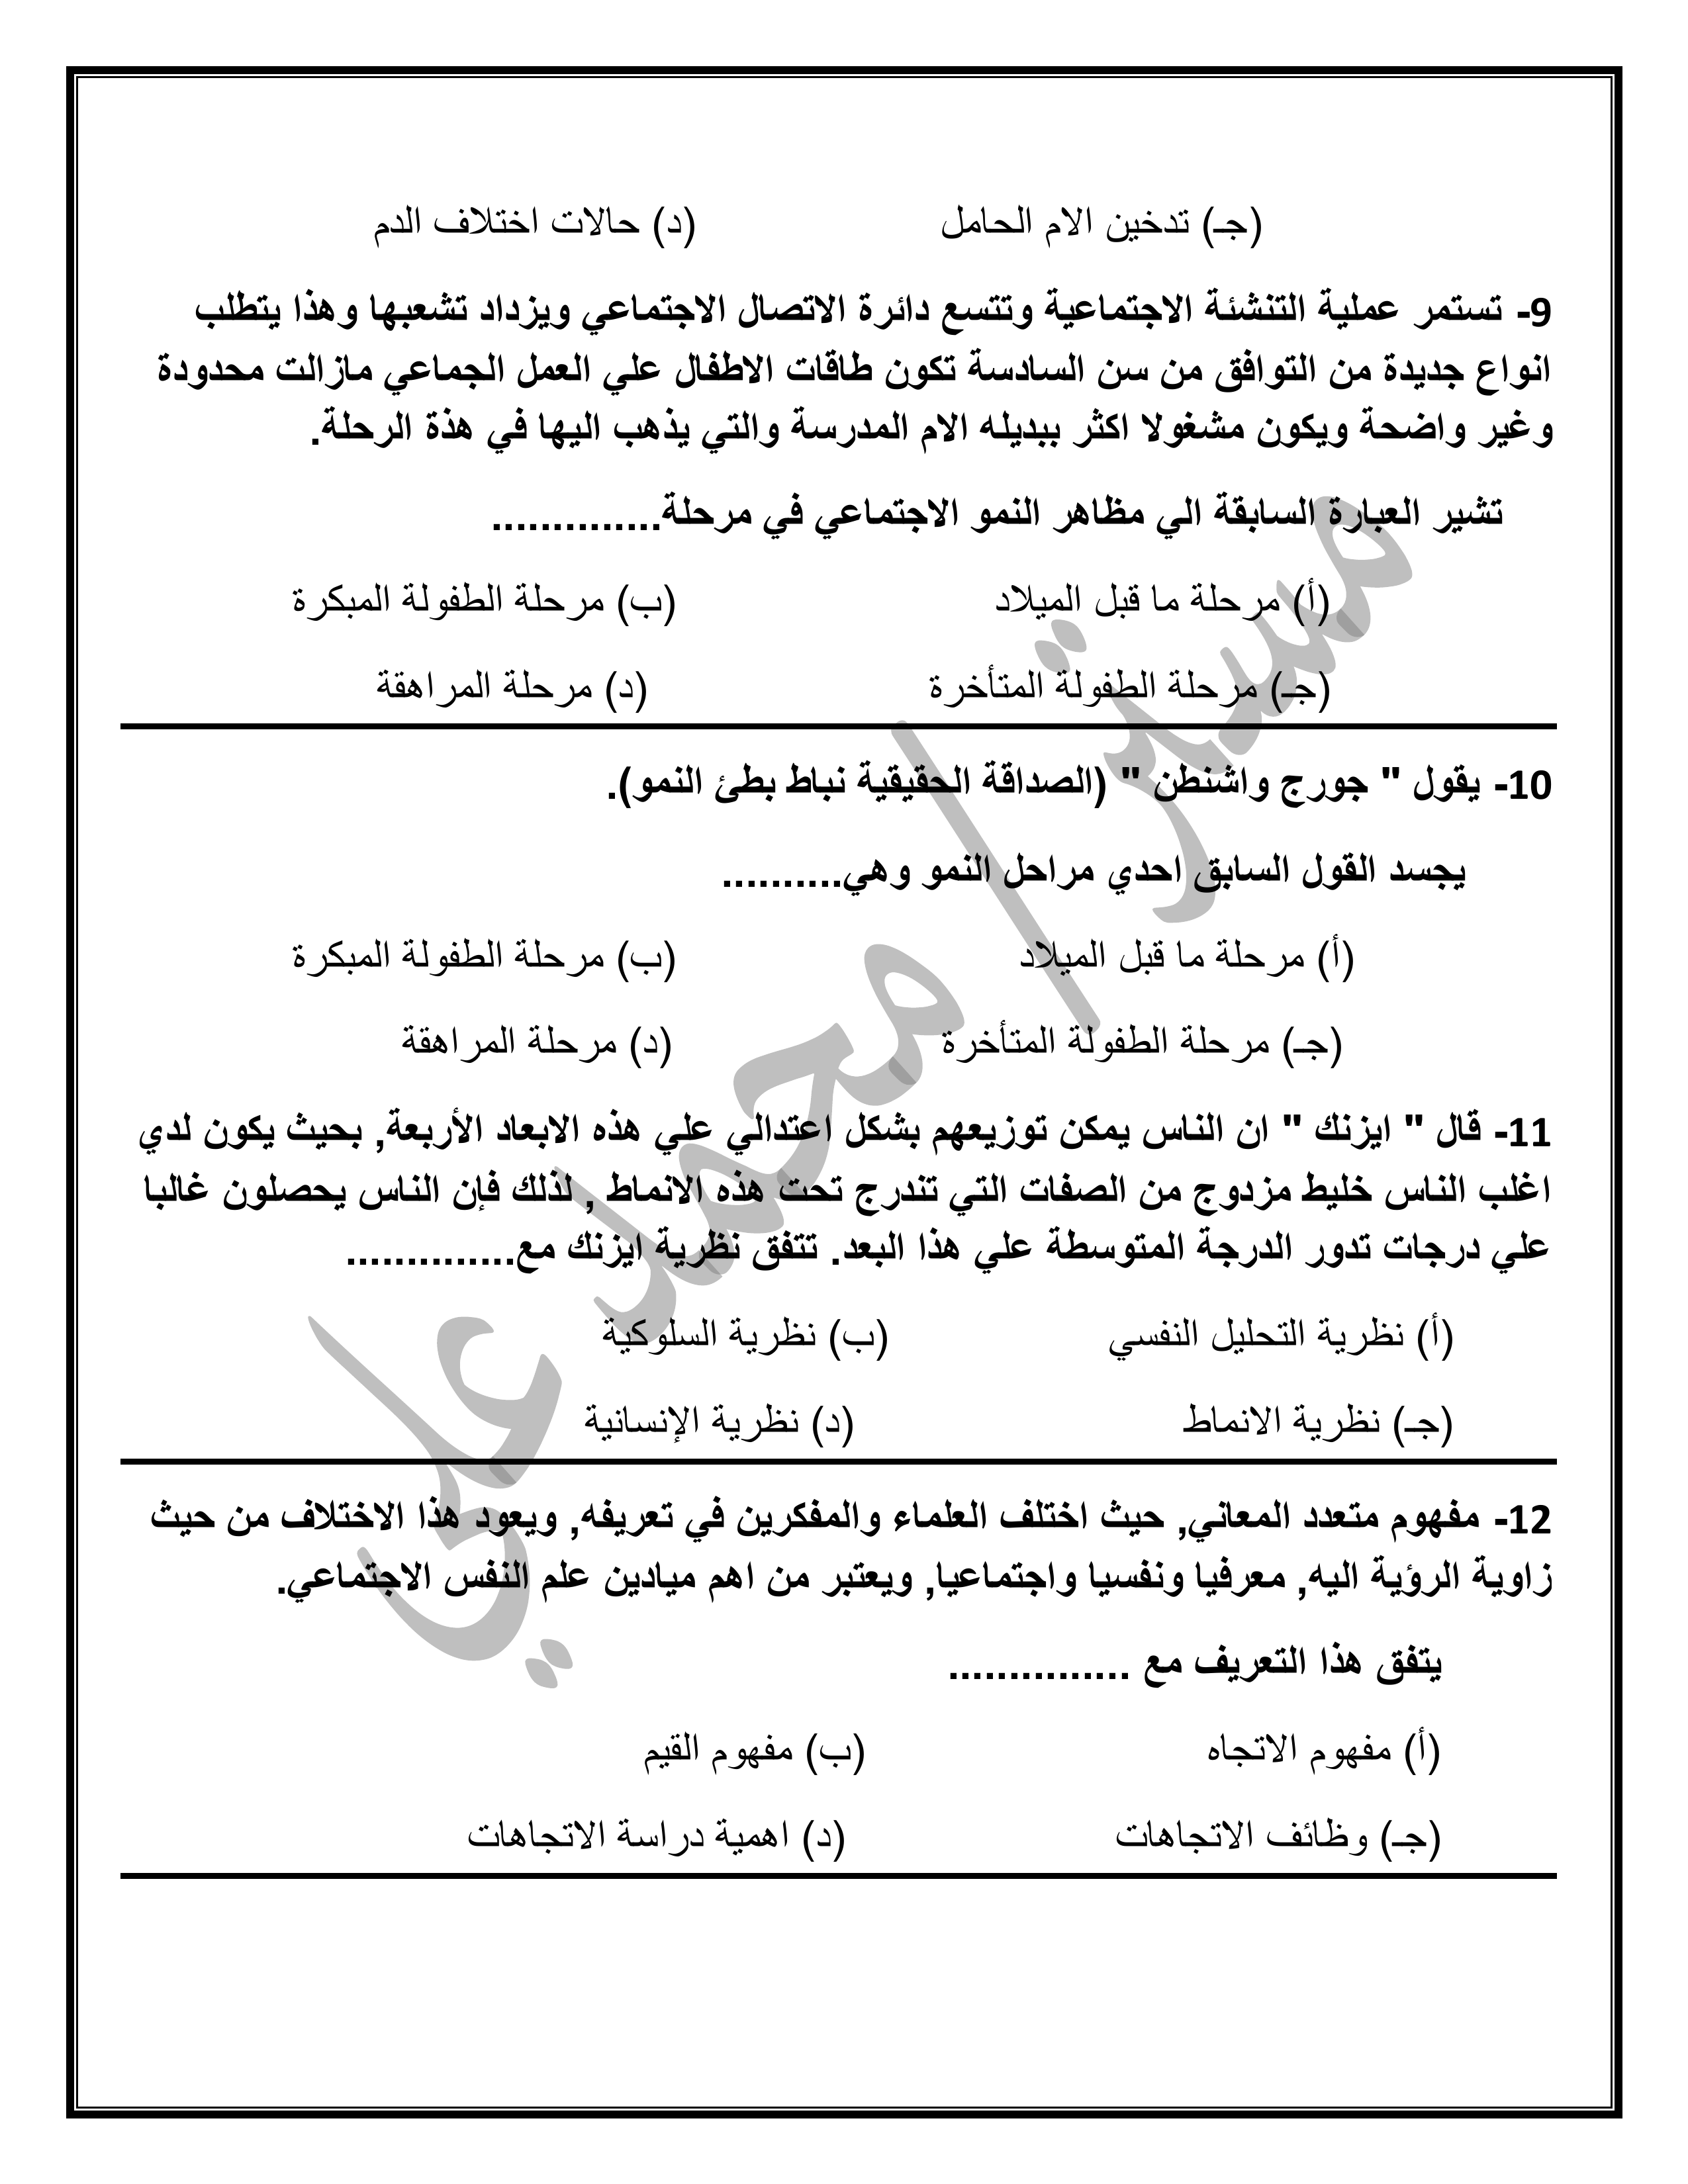 (جـ) تدخين الام الحامل (د) حالات اختلاف الدم
9- تستمر عملية التنشئة الاجتماعية وتتسع دائرة الاتصال الاجتماعي ويزداد تشعبها وهذا يتطلب
انواع جديدة من التوافق من سن السادسة تكون طاقات الاطفال علي العمل الجماعي مازالت محدودة
وغير واضحة ويكون مشغولا اكثر ببديله الام المدرسة والتي يذهب اليها في هذة الرحلة.
تشير العبارة السابقة الي مظاهر النمو الاجتماعي في مرحلة..............
(أ) مرحلة ما قبل الميلاد (ب) مرحلة الطفولة المبكرة
(جـ) مرحلة الطفولة المتأخرة (د) مرحلة المراهقة
10- يقول " جورج واشنطن " (الصداقة الحقيقية نباط بطئ النمو).
يجسد القول السابق احدي مراحل النمو وهي..........
(أ) مرحلة ما قبل الميلاد (ب) مرحلة الطفولة المبكرة
(جـ) مرحلة الطفولة المتأخرة (د) مرحلة المراهقة
11- قال " ايزنك " ان الناس يمكن توزيعهم بشكل اعتدالي علي هذه الابعاد الأربعة, بحيث يكون لدي
اغلب الناس خليط مزدوج من الصفات التي تندرج تحت هذه الانماط , لذلك فإن الناس يحصلون غالبا
علي درجات تدور الدرجة المتوسطة علي هذا البعد. تتفق نظرية ايزنك مع..............
(أ) نظرية التحليل النفسي (ب) نظرية السلوكية
(جـ) نظرية الانماط (د) نظرية الإنسانية
12- مفهوم متعدد المعاني, حيث اختلف العلماء والمفكرين في تعريفه, ويعود هذا الاختلاف من حيث
زاوية الرؤية اليه, معرفيا ونفسيا واجتماعيا, ويعتبر من اهم ميادين علم النفس الاجتماعي.
يتفق هذا التعريف مع ...............
(أ) مفهوم الاتجاه (ب) مفهوم القيم
(جـ) وظائف الاتجاهات (د) اهمية دراسة الاتجاهات
مستر/ محمد علي